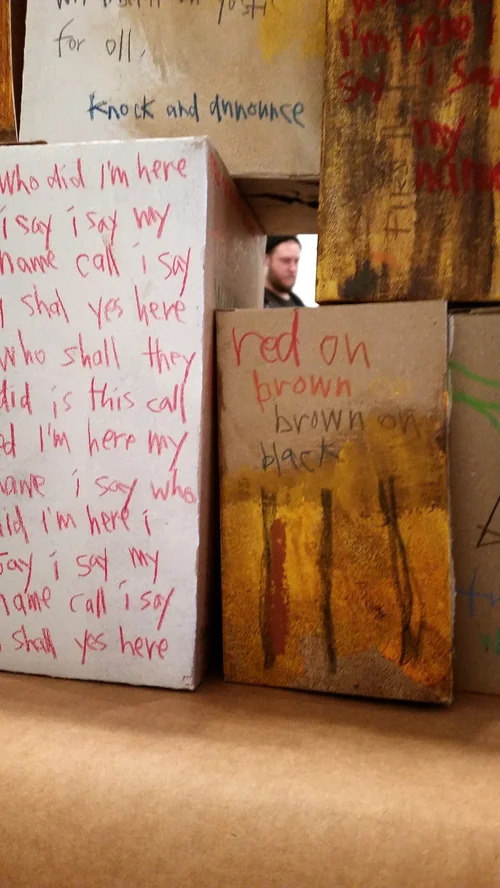 for oll,
knock and announce
i'm here
say i say
my
name
who did I'm here
i say i say my
name call i say
shal yes here
who shall they
did is this call
I'm here my
name i say who
did I'm here i
say i say my
name call i say
shall yes here
red on
brown on
brown on
black